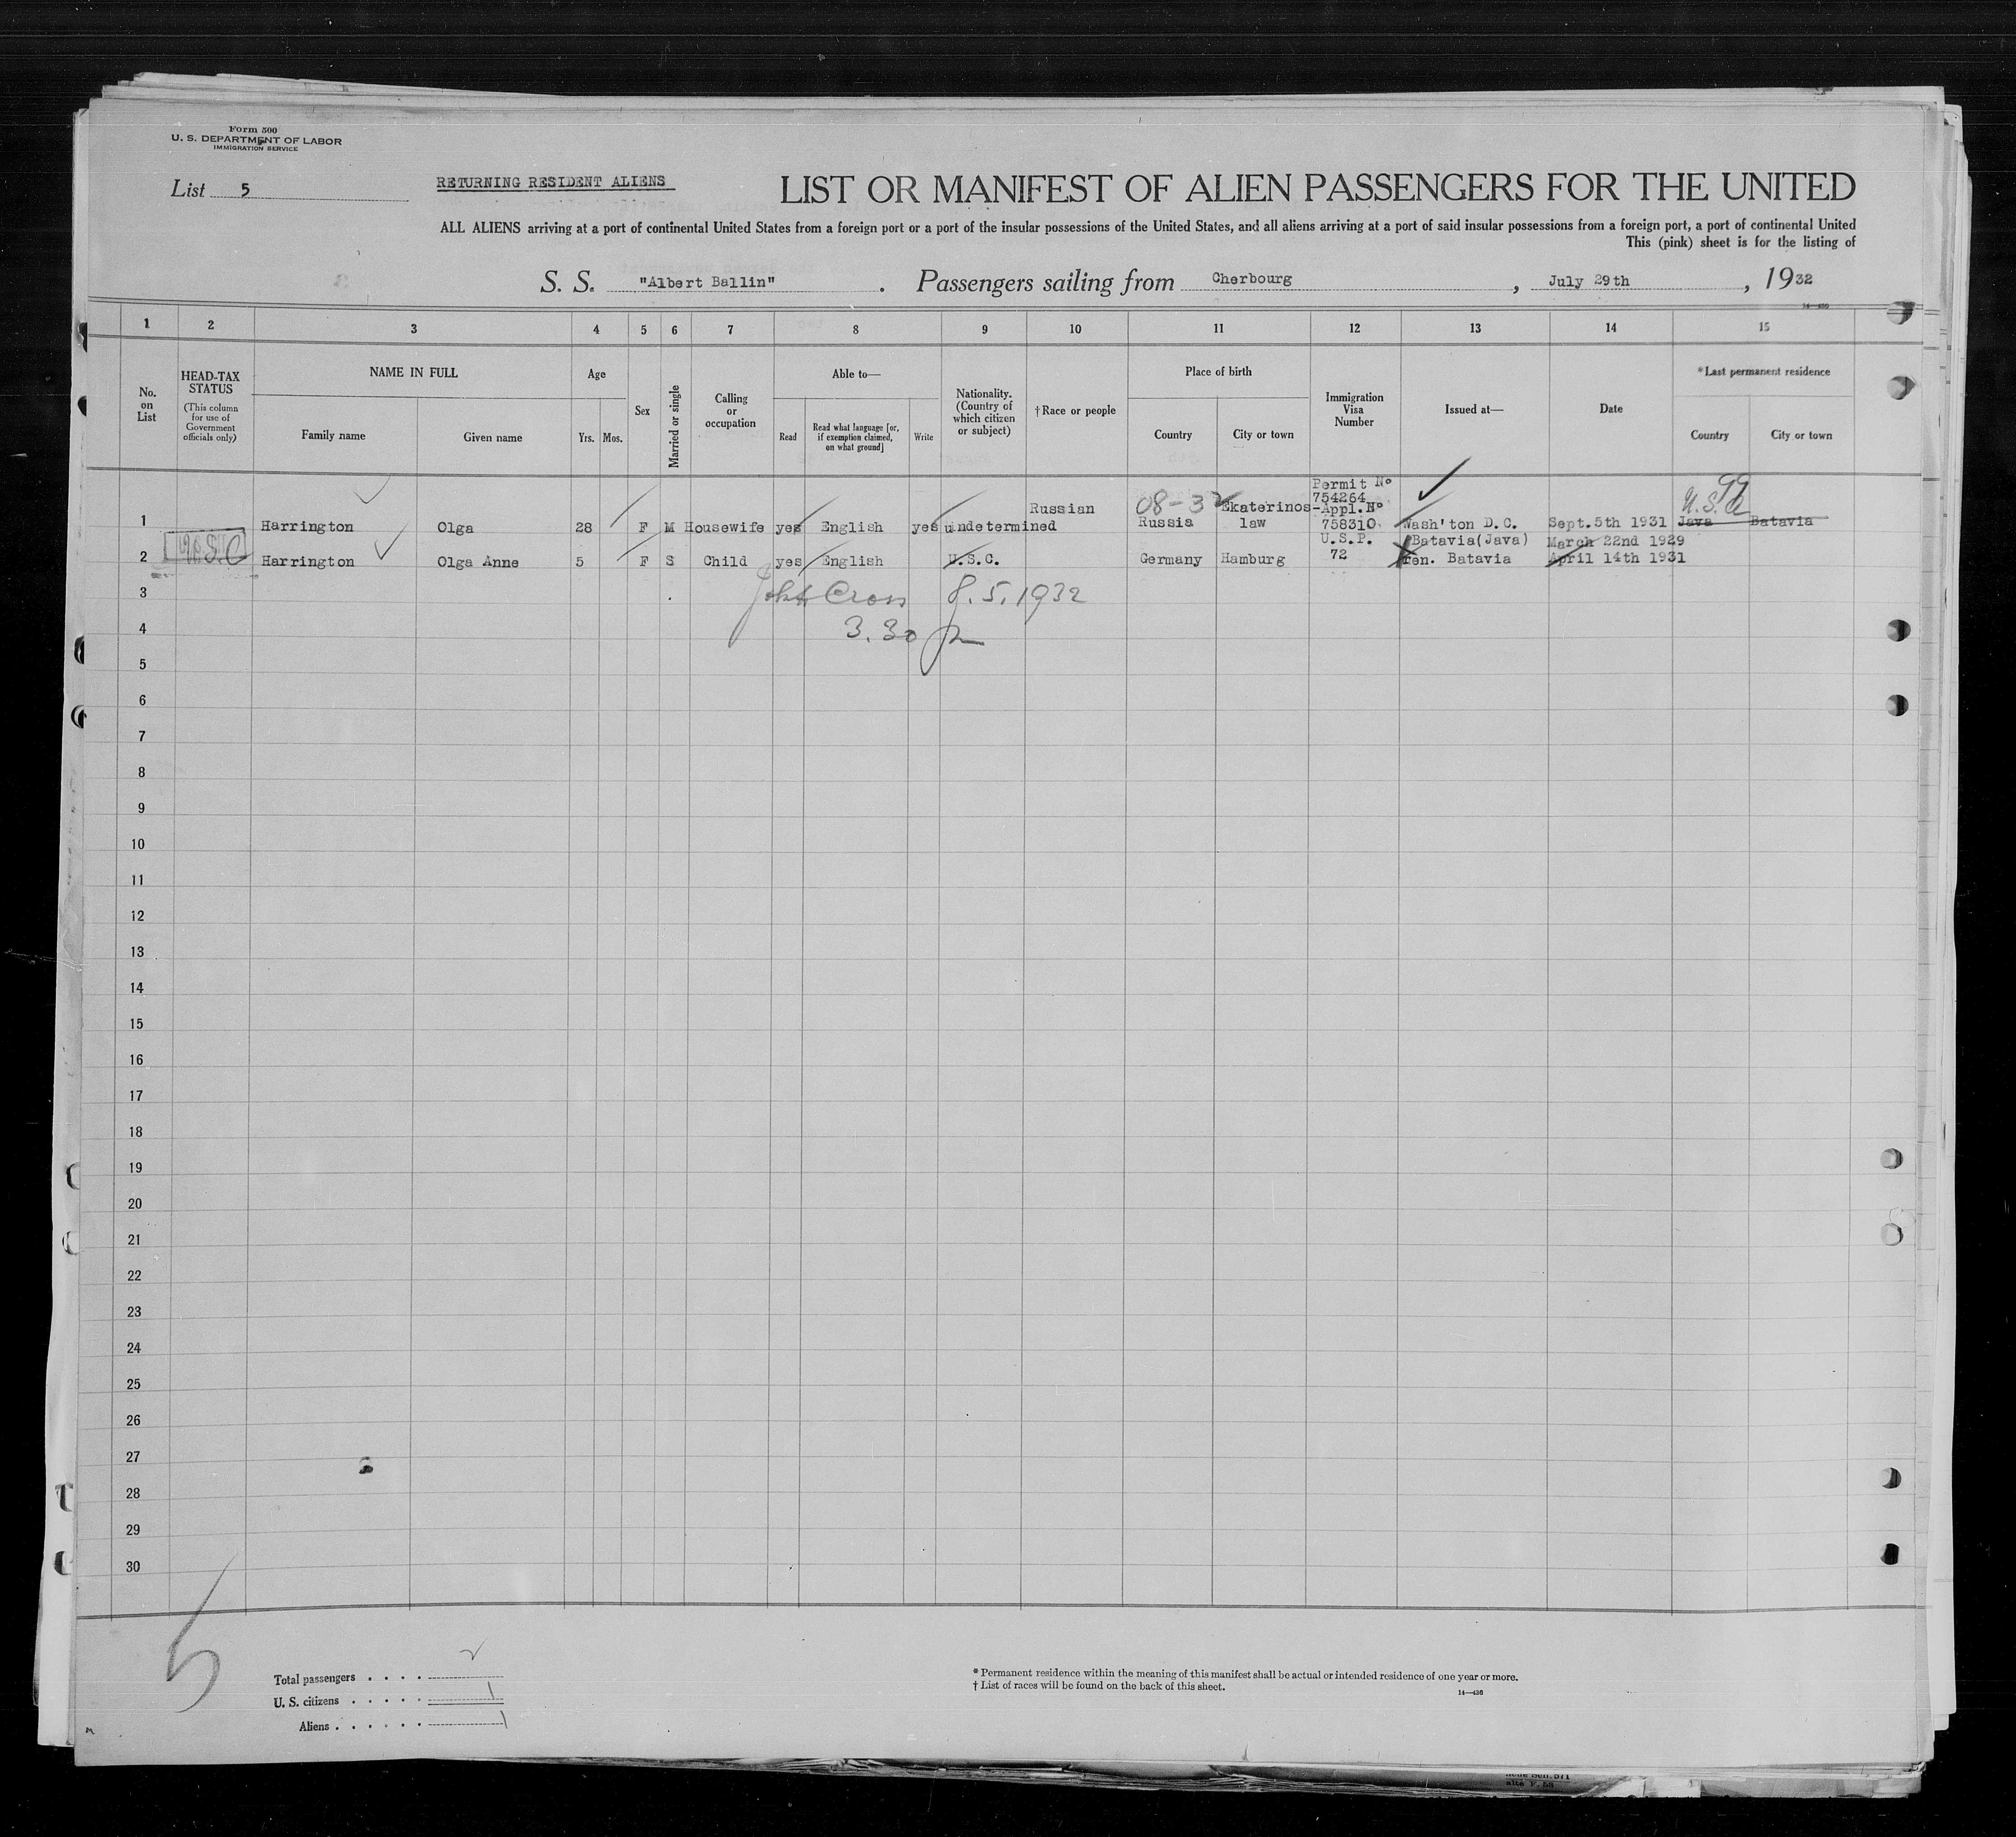 Form 500
U. S. DEPARTMENT OF LABOR
IMMIGRATION SERVICE
List 5
RETURNING RESIDENT ALIENS
LIST OR MANIFEST OF ALIEN PASSENGERS FOR THE UNITED
ALL ALIENS arriving at a port of continental United States from a foreign port or a port of the insular possessions of the United States, and all aliens arriving at a port of said insular possessions from a foreign port, a port of continental United
This (pink) sheet is for the listing of
S. S. "Albert Ballin" . Passengers sailing from Cherbourg , July 29th , 1932
14—436
1 2 3 4 5 6 7 8 9 10 11 12 13 14 15
No. on List
HEAD-TAX STATUS
(This column for use of Government officials only)
NAME IN FULL
Family name
Given name
Age
Yrs. Mos.
Sex
Married or single
Calling or occupation
Able to—
Read
Read what language [or, if exemption claimed, on what ground]
Write
Nationality. (Country of which citizen or subject)
† Race or people
Place of birth
Country
City or town
Immigration Visa Number
Issued at—
Date
* Last permanent residence
Country
City or town
1 Harrington Olga 28 F M Housewife yes English yes undetermined Russian 08-3 Russia Ekaterinoslaw Permit No 754264 -Appl.No 758310 Wash'ton D.C. Sept.5th 1931 U.S.A Java Batavia
2 U.S.C Harrington Olga Anne 5 F S Child yes English U.S.C. Germany Hamburg U.S.P. 72 Batavia(Java) March 22nd 1929
ren. Batavia April 14th 1931
3 John Cross 8.5.1932
4 3.30
5
6
7
8
9
10
11
12
13
14
15
16
17
18
19
20
21
22
23
24
25
26
27
28
29
30
5
Total passengers . . . . 2
U. S. citizens . . . . . 1
Aliens . . . . . . 1
* Permanent residence within the meaning of this manifest shall be actual or intended residence of one year or more.
† List of races will be found on the back of this sheet.
14—436